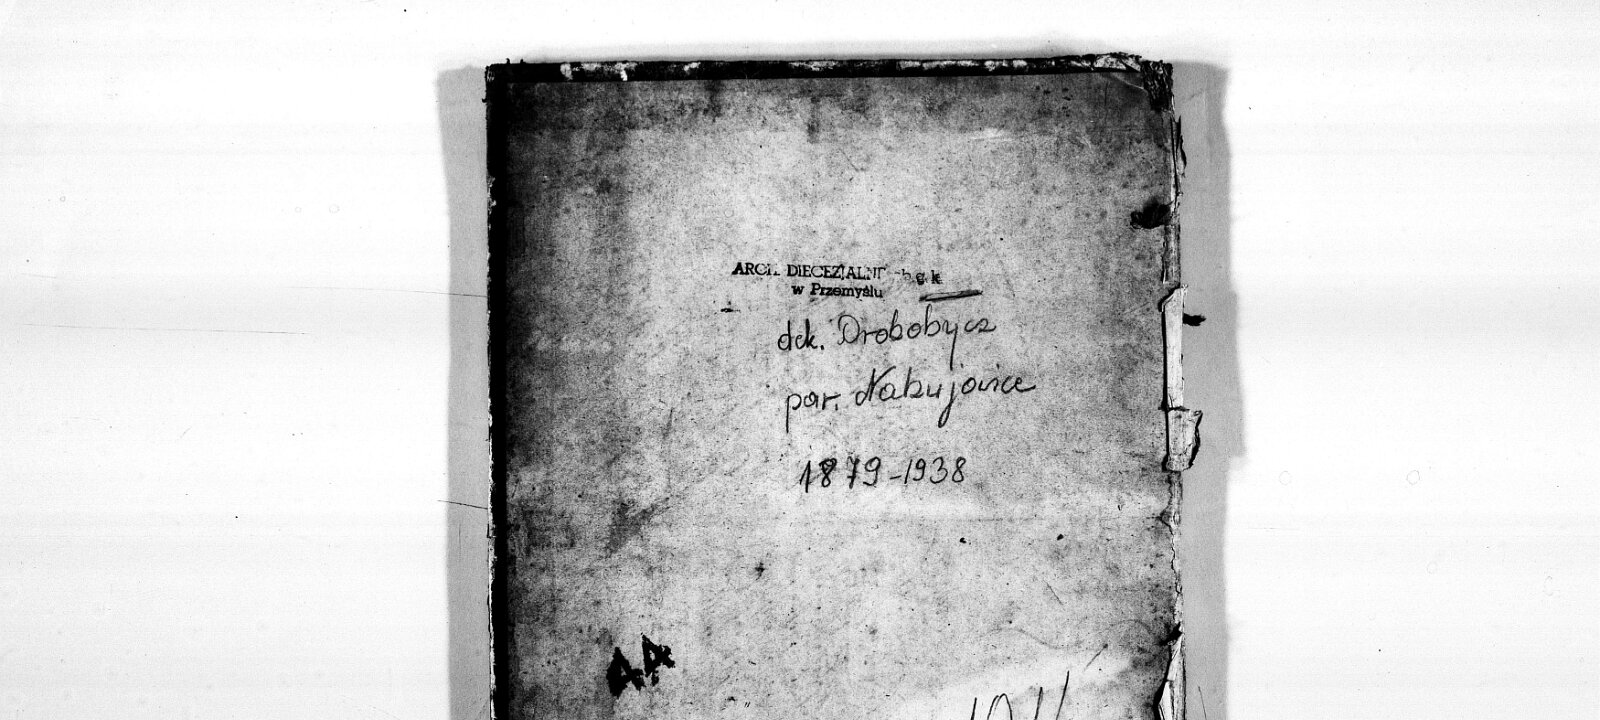 ARCH. DIECEZJALNE ob. g. k.
w Przemyślu
dek. Drobobycz
par. Nahujowice
1879-1938